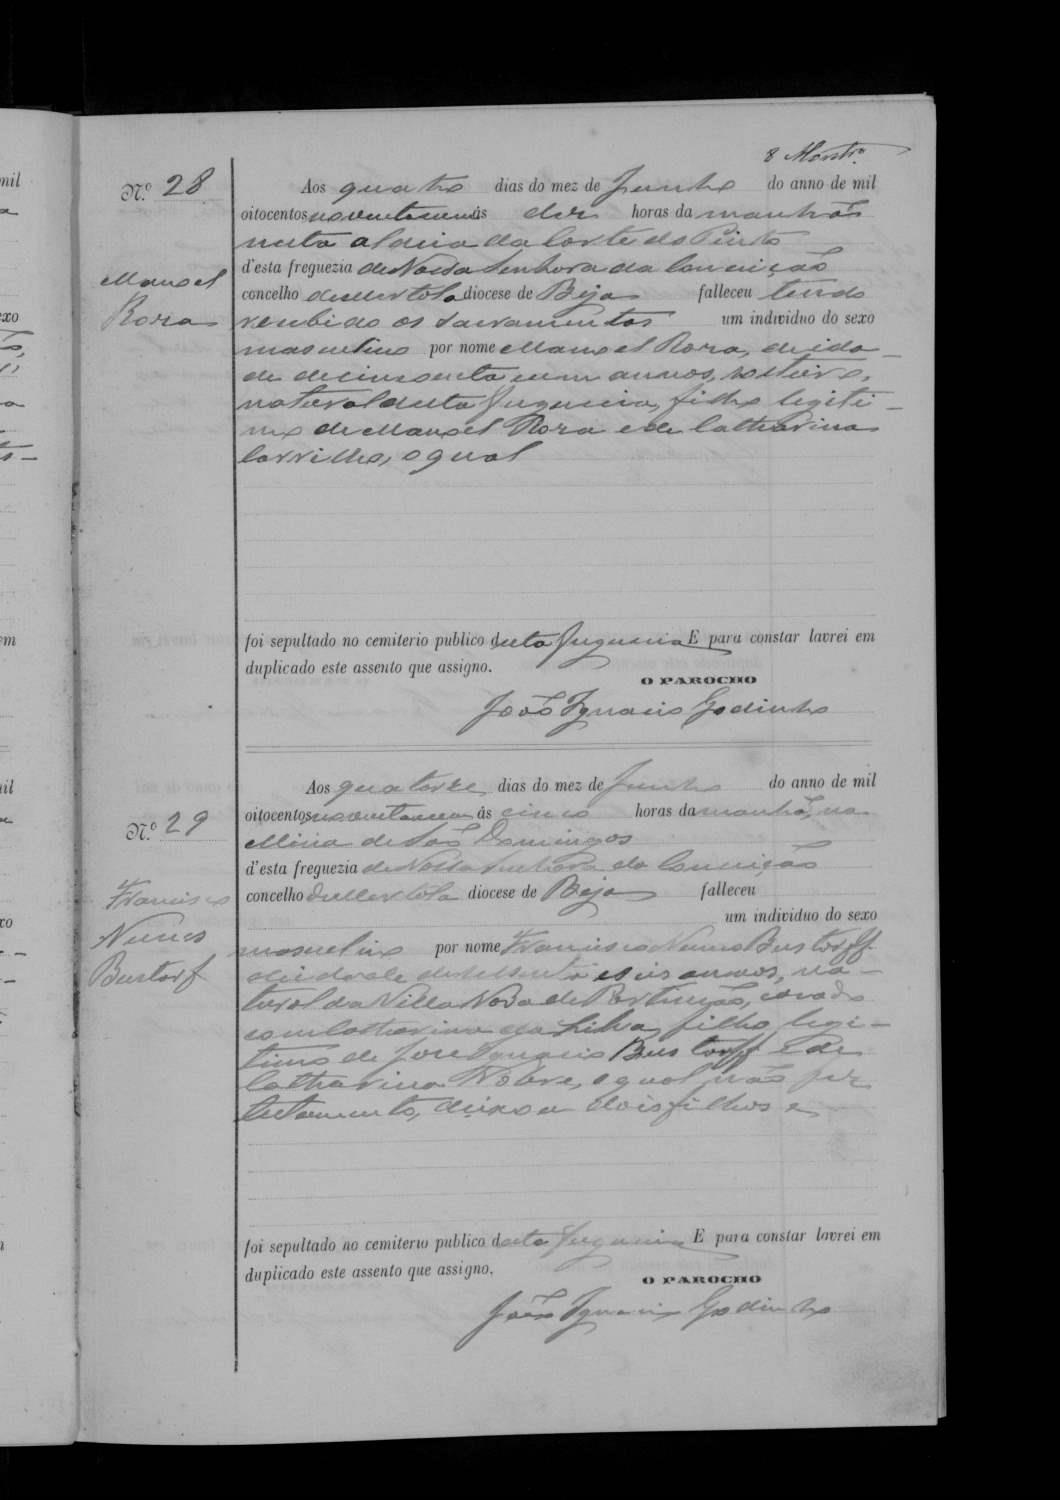 8
N.º 28
Manoel
Rosa
Aos quatro dias do mez de Junho do anno de mil
oitocentos noventa e um ás dez horas da manhã
nesta aldeia da Corte do Pinto
d'esta freguezia de Nossa Senhora da Conceição
concelho de Mertola diocese de Beja falleceu tendo
recebido os sacramentos um individuo do sexo
masculino por nome Manoel Rosa, de ida-
de de cincoenta e um annos, solteiro,
natural desta freguezia, filho legiti-
mo de Manoel Rosa e de Catharina
Corrilho, o qual
foi sepultado no cemiterio publico desta freguezia E para constar lavrei em
duplicado este assento que assigno.
O PAROCHO
João Ignacio Godinho
N.º 29
Francisco
Nunes
Bustorf
Aos quatorze dias do mez de Junho do anno de mil
oitocentos noventa e um ás cinco horas da manhã, na
Mina de São Domingos
d'esta freguezia de Nossa Senhora da Conceição
concelho de Mertola diocese de Beja falleceu
um individuo do sexo
masculino por nome Francisco Nunes Bustorff
de idade de sessenta e seis annos, na-
tural da Villa Nova de Portimão, casado
com Catharina da Silva, filho legi-
timo de José Ignacio Bustorff e de
Catharina Nobre, o qual não fez
testamento, deixou dois filhos e
foi sepultado no cemiterio publico desta freguezia E para constar lavrei em
duplicado este assento que assigno.
O PAROCHO
João Ignacio Godinho